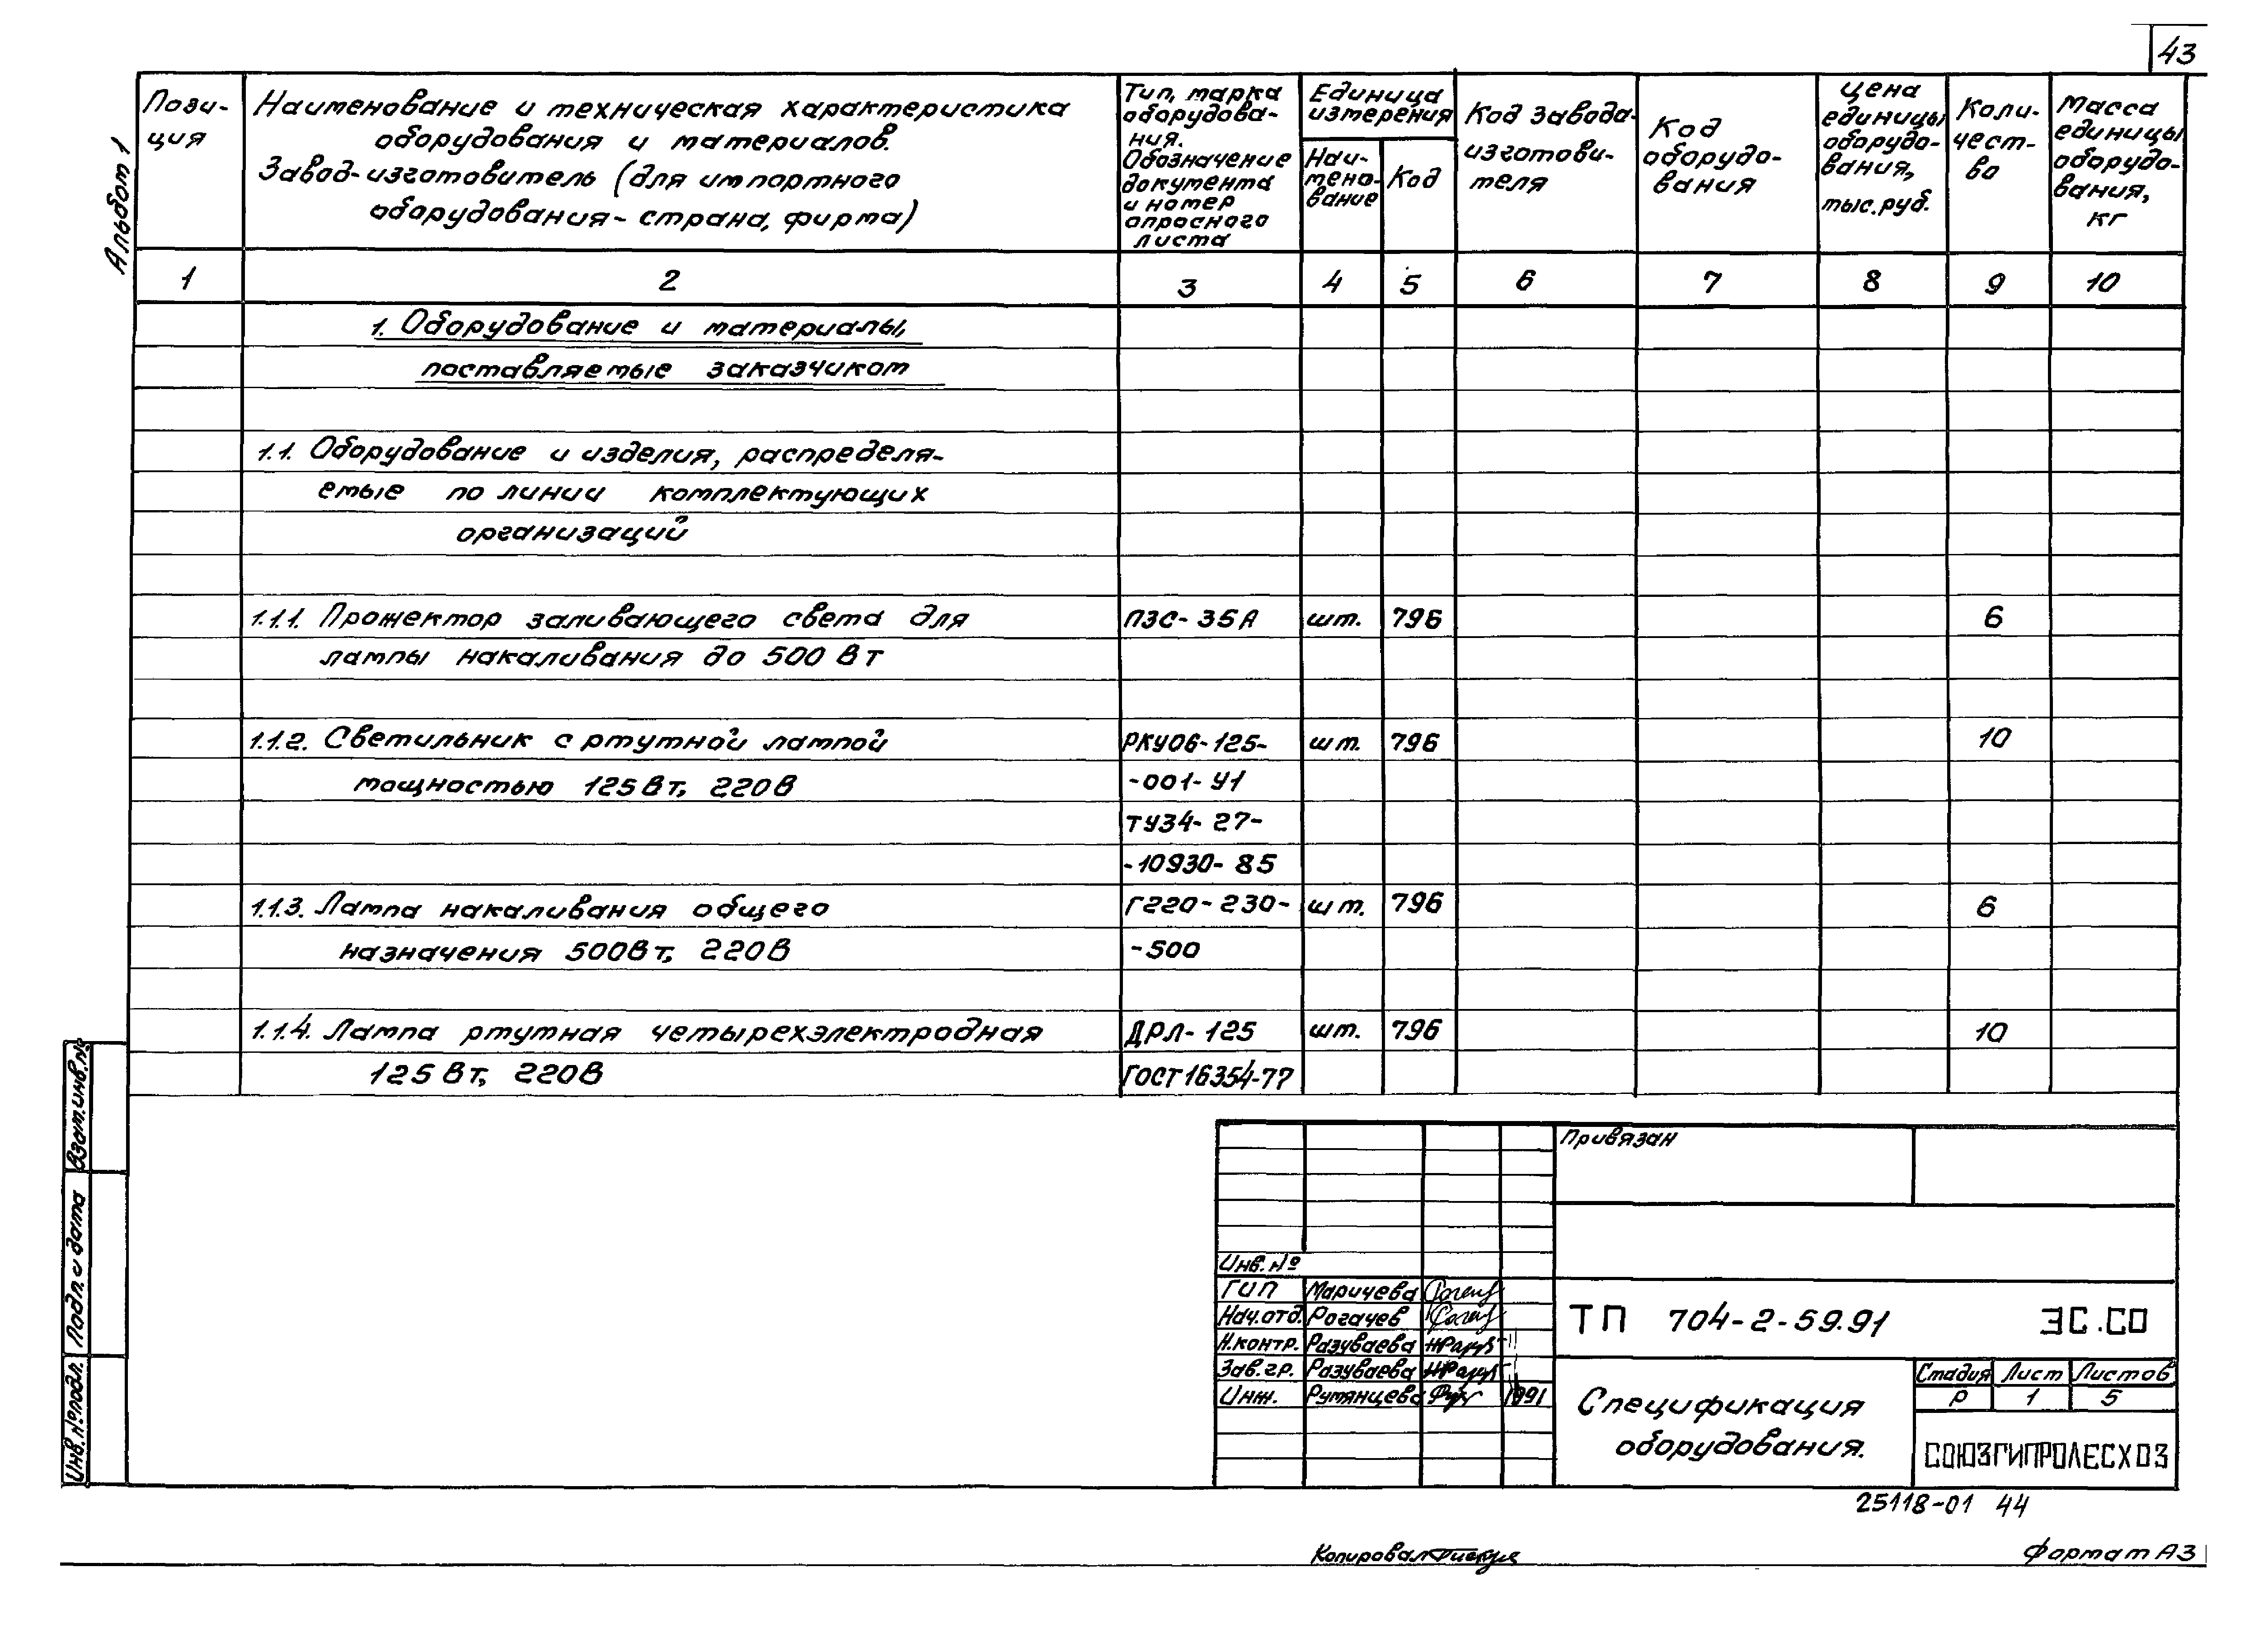 43
Альбом 1
Пози-
ция
Наименование и техническая характеристика
оборудования и материалов.
Завод-изготовитель (для импортного
оборудования- страна, фирма)
Тип, марка
оборудова-
ния.
Обозначение
документа
и номер
опросного
листа
Единица
измерения
Наи-
мено-
вание
Код
Код завода-
изготови-
теля
Код
оборудо-
вания
Цена
единицы
оборудо-
вания,
тыс.руб.
Коли-
чест-
во
Масса
единицы
оборудо-
вания,
кг
1 2 3 4 5 6 7 8 9 10
1. Оборудование и материалы,
поставляемые заказчиком
1.1. Оборудование и изделия, распределя-
емые по линии комплектующих
организаций
1.1.1. Прожектор заливающего света для ПЗС-35А шт. 796 6
лампы накаливания до 500 Вт
1.1.2. Светильник с ртутной лампой РКУ06-125- шт. 796 10
мощностью 125Вт, 220В -001-У1
ТУ34-27-
-10930-85
1.1.3. Лампа накаливания общего Г220-230- шт. 796 6
назначения 500Вт, 220В -500
1.1.4. Лампа ртутная четырехэлектродная ДРЛ-125 шт. 796 10
125 Вт, 220В ГОСТ 16354-77
Взам.инв.№
Подп. и дата
Инв.№подл.
Привязан
Инв. №
ГИП Маричева
Нач.отд. Рогачев
Н.контр. Разуваева
Зав.гр. Разуваева
Инж. Румянцева 1991
ТП 704-2-59.91 ЭС.СО
Спецификация
оборудования.
Стадия Лист Листов
Р 1 5
СОЮЗГИПРОЛЕСХОЗ
25118-01 44
Копировал
Формат А3